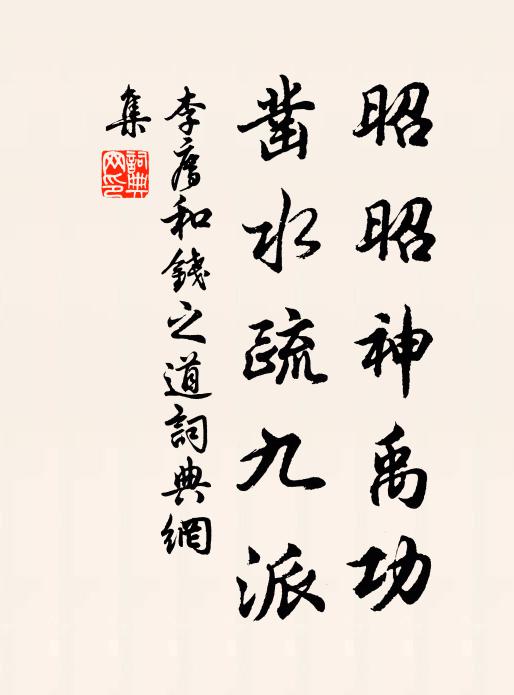 昭昭神禹功
凿水疏九派
李廌和錢之道詞典網
集
詞典
网印